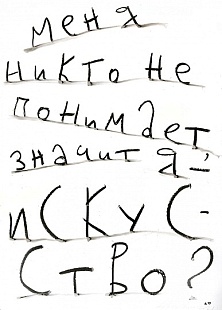 меня
никто не
понимает
значит я –
искус-
ство?